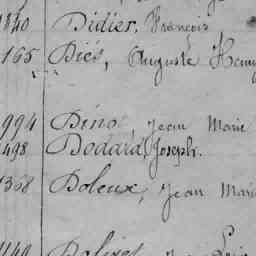 1840 Didier, François
165 Diès, Auguste Henry
994 Dino, Jean Marie
498 Dodard, Joseph.
1368 Doleux, Jean Marie